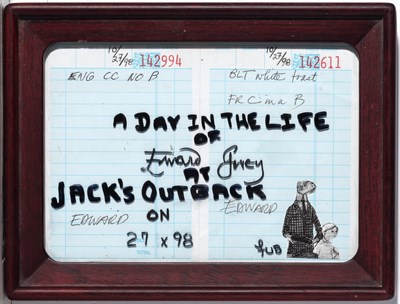 10/23/98 142994
10/23/98 142611
ENG CC NO B
BLT white toast
FR Cin a B
A DAY IN THE LIFE
OF
Edward Gorey
AT
JACK'S OUTBACK
EDWARD
EDWARD
ON
27 X 98
TOTAL